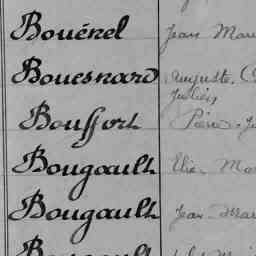 Bouénel Jean Mau
Bouesnard Auguste,
Julien
Bouffort Pierre. J
Bougault Elie. Ma
Bougault Jean. Mar
Bougault